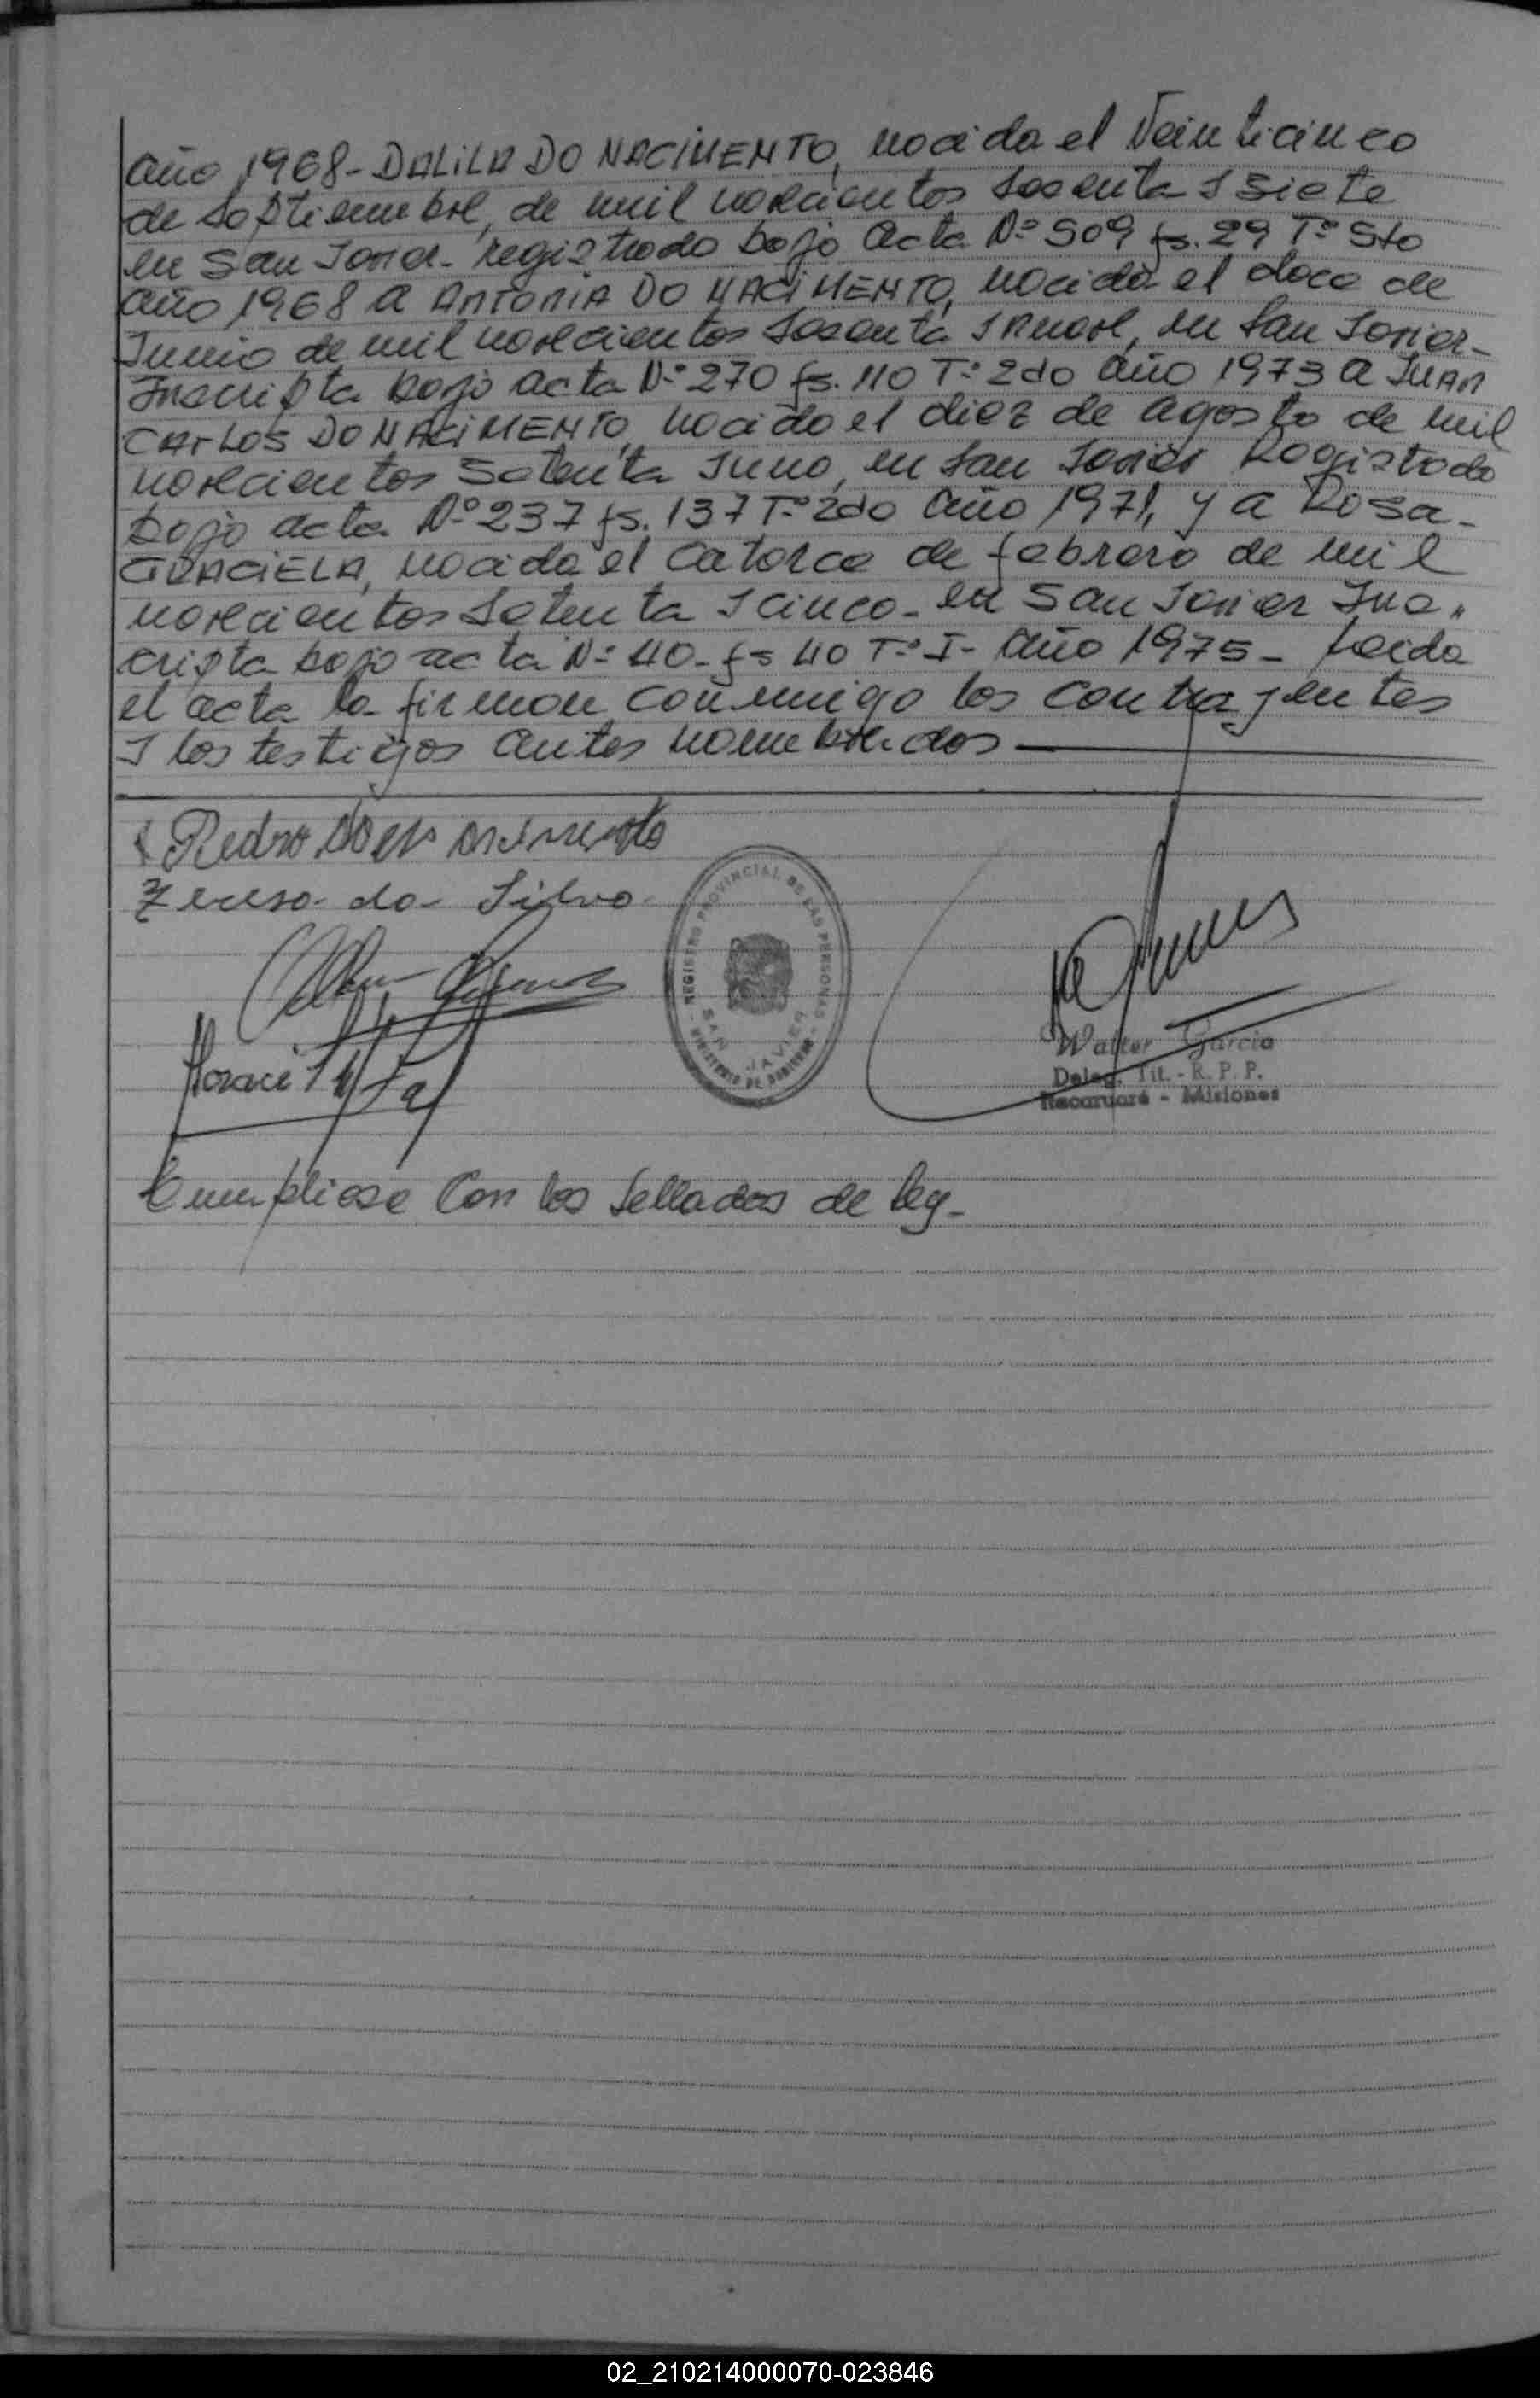 año 1968- DALILA DO NACIMENTO, nacida el Veinticinco
de Septiembre, de mil novecientos sesenta y siete
en San Javier- registrado bajo acta Nº 509 fs. 29 Tº 5to
año 1968 a ANTONIA DO NACIMENTO, nacida el doce de
Junio de mil novecientos sesenta y nueve, en San Javier-
Inscripta bajo acta Nº 270 fs. 110 Tº 2do año 1973 a JUAN
CARLOS DO NACIMENTO, nacido el diez de agosto de mil
novecientos setenta y uno, en San Javier Registrado
bajo acta Nº 237 fs. 137 Tº 2do año 1971, y a Rosa-
GRACIELA, nacida el catorce de febrero de mil
novecientos setenta y cinco- en San Javier Ins-
cripta bajo acta Nº 40- fs 40 Tº I- año 1975- Leida
el acta la firman conmigo los contrayentes
y los testigos antes nombrados
Pedro do nascimento
Teresa da Silva
REGISTRO PROVINCIAL DE LAS PERSONAS
SAN JAVIER
MINISTERIO DE GOBIERNO
Walter Garcia
Deleg. Tit. - R. P. P.
Itacaruaré - Misiones
Cumpliose Con los Sellados de Ley-
02_210214000070-023846